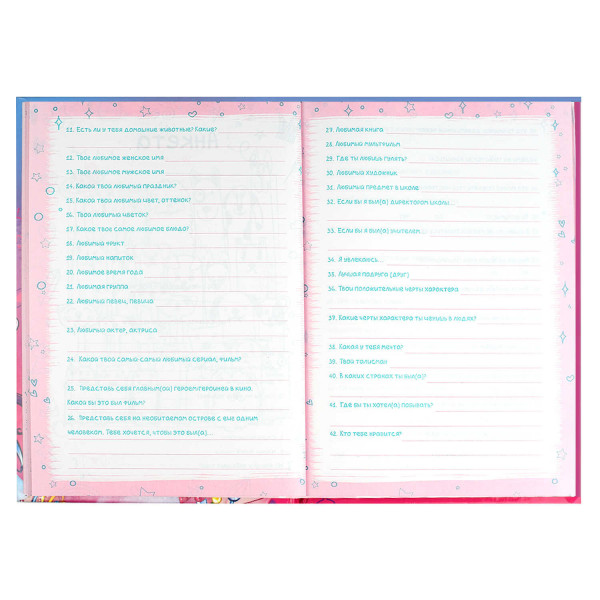 11. Есть ли у тебя домашние животные? Какие?
12. Твое любимое женское имя
13. Твое любимое мужское имя
14. Какой твой любимый праздник?
15. Какой твой любимый цвет, оттенок?
16. Твой любимый цветок?
17. Какое твое самое любимое блюдо?
18. Любимый фрукт
19. Любимый напиток
20. Любимое время года
21. Любимая группа
22. Любимый певец, певица
23. Любимый актер, актриса
24. Какой твой самый-самый любимый сериал, фильм?
25. Представь себя главным(ой) героем/героиней в кино.
Какой бы это был фильм?
26. Представь себя на необитаемом острове с еще одним
человеком. Тебе хочется, чтобы это был(а)...
АНКЕТА
27. Любимая книга
28. Любимый мультфильм
29. Где ты любишь гулять?
30. Любимый художник
31. Любимый предмет в школе
32. Если бы я был(а) директором школы...
33. Если бы я был(а) учителем...
34. Я увлекаюсь...
35. Лучшая подруга (друг)
36. Твои положительные черты характера
37. Какие черты характера ты ценишь в людях?
38. Какая у тебя мечта?
39. Твой талисман
40. В каких странах ты был(а)?
41. Где бы ты хотел(а) побывать?
42. Кто тебе нравится?